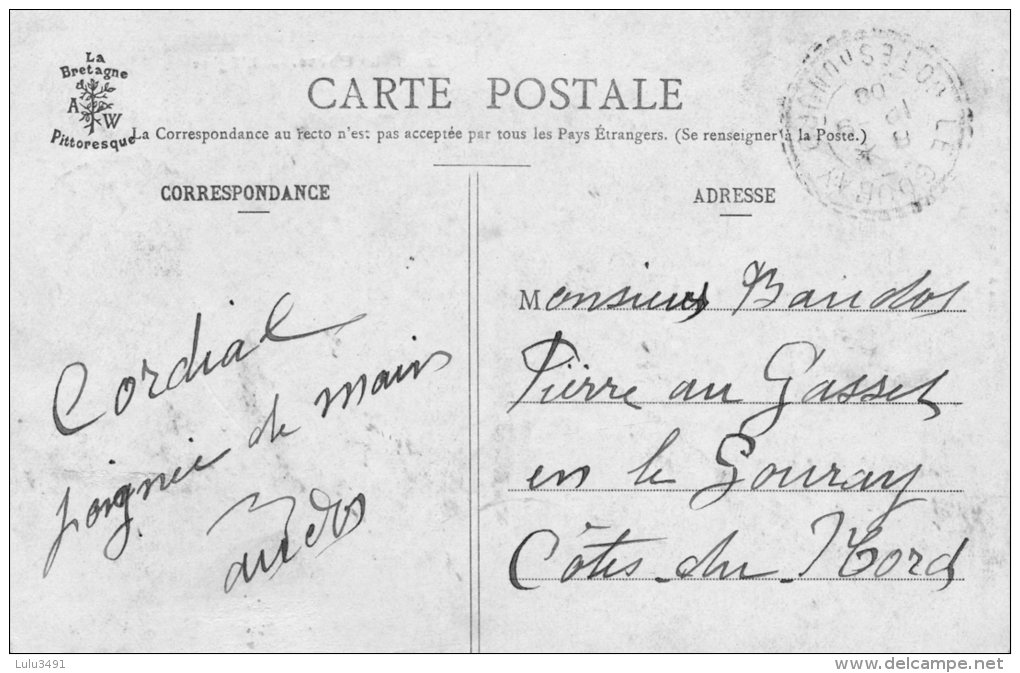 La
Bretagne
A W
Pittoresque
CARTE POSTALE
La Correspondance au recto n'est pas acceptée par tous les Pays Étrangers. (Se renseigner à la Poste.)
CORRESPONDANCE
ADRESSE
Cordial
poignée de main
Monsieur
Pierre au Gasset
en le Gouray
Côtes-du-Nord
LE GOURAY CÔTES DU NORD
Lulu3491
www.delcampe.net